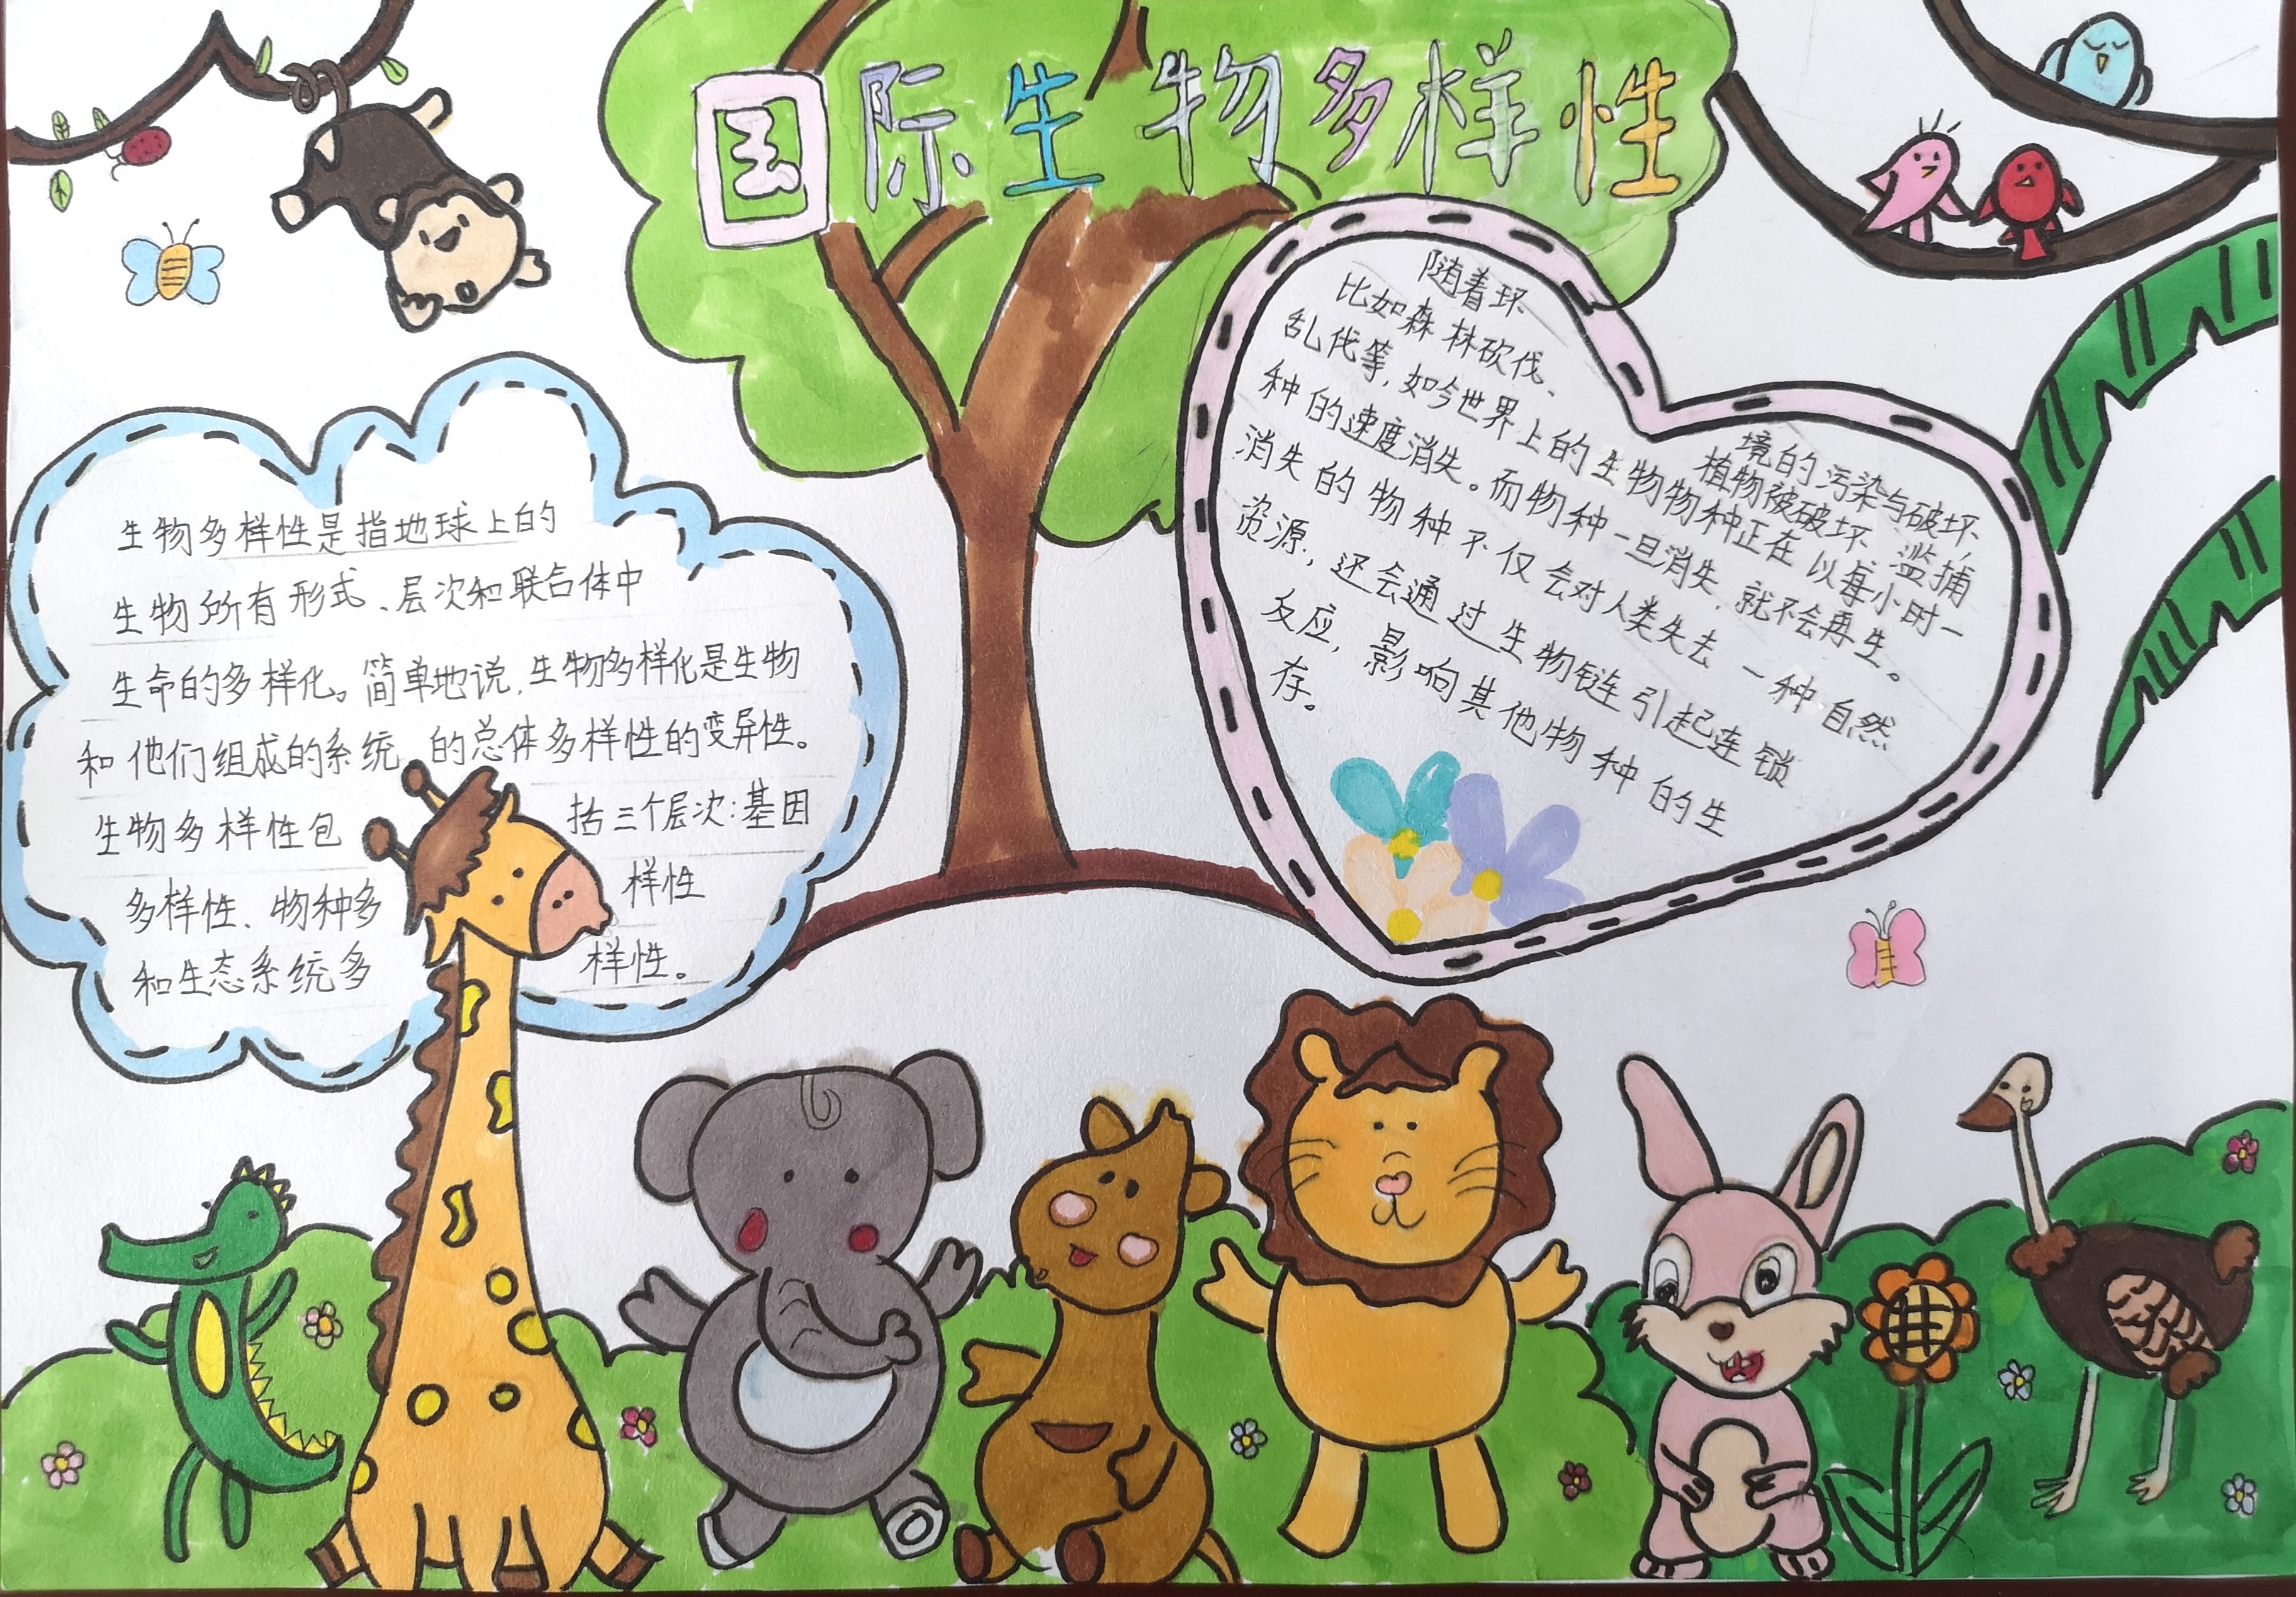 国际生物多样性
生物多样性是指地球上的
生物所有形式、层次和联合体中
生命的多样化。简单地说,生物多样化是生物
和他们组成的系统的总体多样性的变异性。
生物多样性包括三个层次:基因
多样性、物种多样性
和生态系统多样性。
随着环境的污染与破坏,
比如森林砍伐、植物被破坏、滥捕
乱伐等,如今世界上的生物物种正在以每小时一
种的速度消失。而物种一旦消失,就不会再生。
消失的物种不仅会对人类失去一种自然
资源,还会通过生物链引起连锁
反应,影响其他物种的生
存。